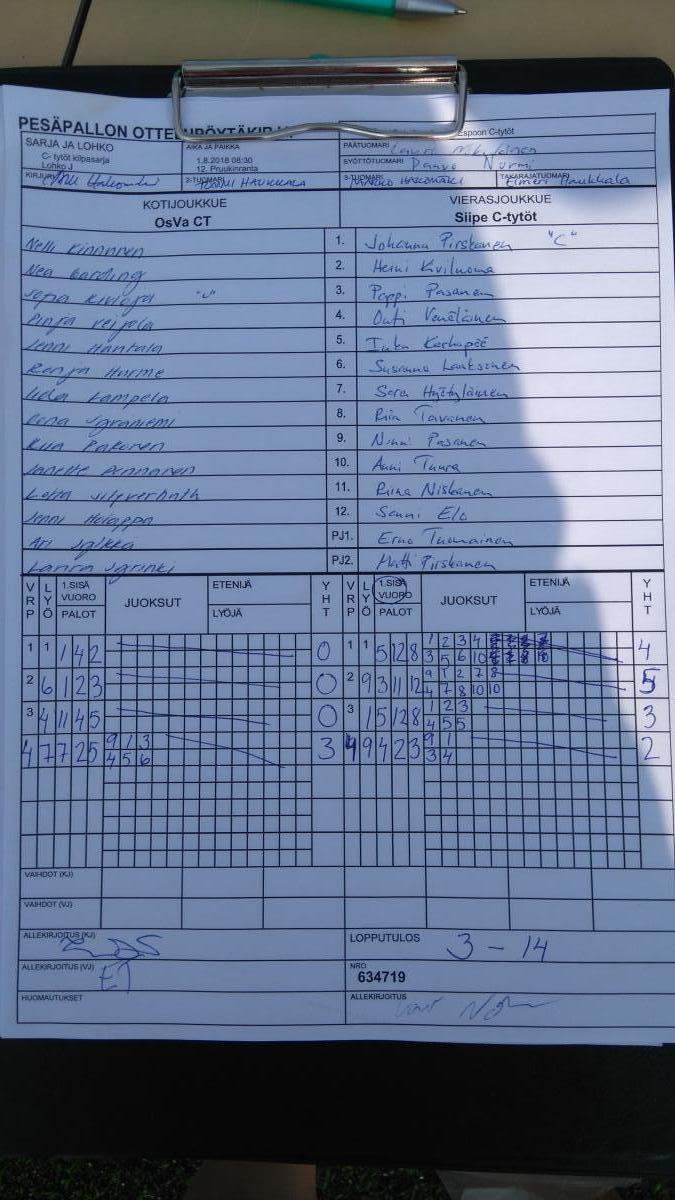 PESÄPALLON OTTE
Espoon C-tytöt
SARJA JA LOHKO
C- tytöt kilpasarja
Lohko J
AIKA JA PAIKKA
1.8.2018 08:30
12. Pruukinranta
PÄÄTUOMARI Lauri
SYÖTTÖTUOMARI Paavo Nurmi
KIRJURI
2-TUOMARI TOMMI HAUKKALA
3-TUOMARI
TAKARAJATUOMARI Elmeri Haukkala
KOTIJOUKKUE
OsVa CT
VIERASJOUKKUE
Siipe C-tytöt
Nelli Kinnunen 1. Johanna Pirskanen "C"
Nea 2. Heini Kiviluoma
3. Peppi Pasanen
Pinja Veijola 4. Outi Venäläinen
Jenni Hantala 5. Inka
Ronja Hurme 6. Susanna Laaksonen
Iida Lampela 7. Sara Hyötyläinen
8. Riia Tavanen
Kiia Pakonen 9. Ninni Pasanen
Janette Pennanen 10. Anni Tuura
Lotta 11. Riina Niskanen
Jenni Holappa 12. Sanni Elo
Ari PJ1. Erno Tuunainen
PJ2. Matti Pirskanen
VRP LYÖ 1.SISÄ VUORO PALOT JUOKSUT ETENIJÄ LYÖJÄ YHT VRP LYÖ 1.SISÄ VUORO PALOT JUOKSUT ETENIJÄ LYÖJÄ YHT
1 1 1 4 2 0 1 1 5 12 8 1 2 3 4 4
3 5 6 10
2 6 1 2 3 0 2 9 3 11 12 9 1 2 7 8 5
4 7 8 10 10
3 4 11 4 5 0 3 1 5 12 8 1 2 3 3
4 5 5
4 7 7 2 5 9 1 3 3 4 9 4 2 3 9 1 2
4 5 6 3 4
VAIHDOT (KJ)
VAIHDOT (VJ)
ALLEKIRJOITUS (KJ)
LOPPUTULOS 3 - 14
ALLEKIRJOITUS (VJ) ET
NRO
634719
HUOMAUTUKSET
ALLEKIRJOITUS